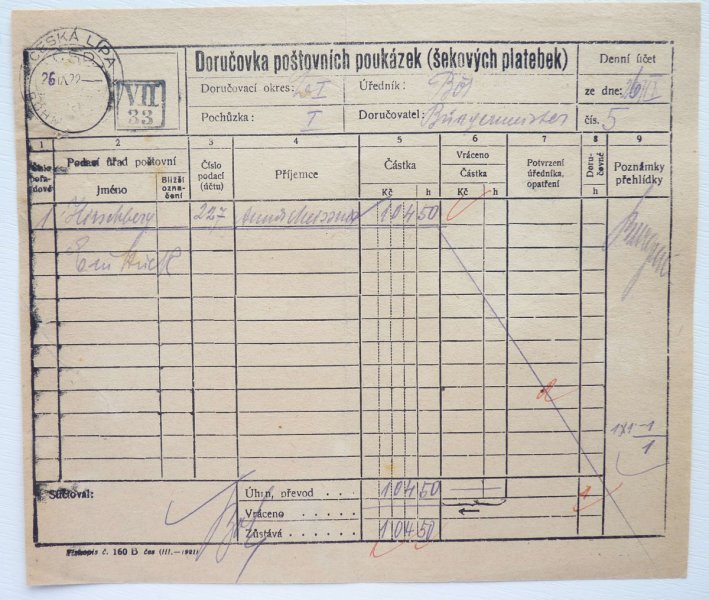 ČESKÁ LÍPA
26 IX 22
VII
33
Doručovka poštovních poukázek (šekových platebek)
Denní účet
Doručovací okres: I
Úředník:
ze dne:
Pochůzka: I
Doručovatel: Bürgermeister
čís. 5
1 2 3 4 5 6 7 8 9
Podací úřad poštovní
Jméno
Bližší označení
Číslo podací (účtu)
Příjemce
Částka
Kč h
Vráceno
Částka
Kč h
Potvrzení úředníka, opatření
Doručovné
h
Poznámky přehlídky
1 Hirschberg 227 104 50
1X1-1
1
Súčtoval:
Úhrn, převod . . . . 104 50
Vráceno . . . .
Zůstává . . . . 104 50
Tiskopis č. 160 B čes (III.—1921)